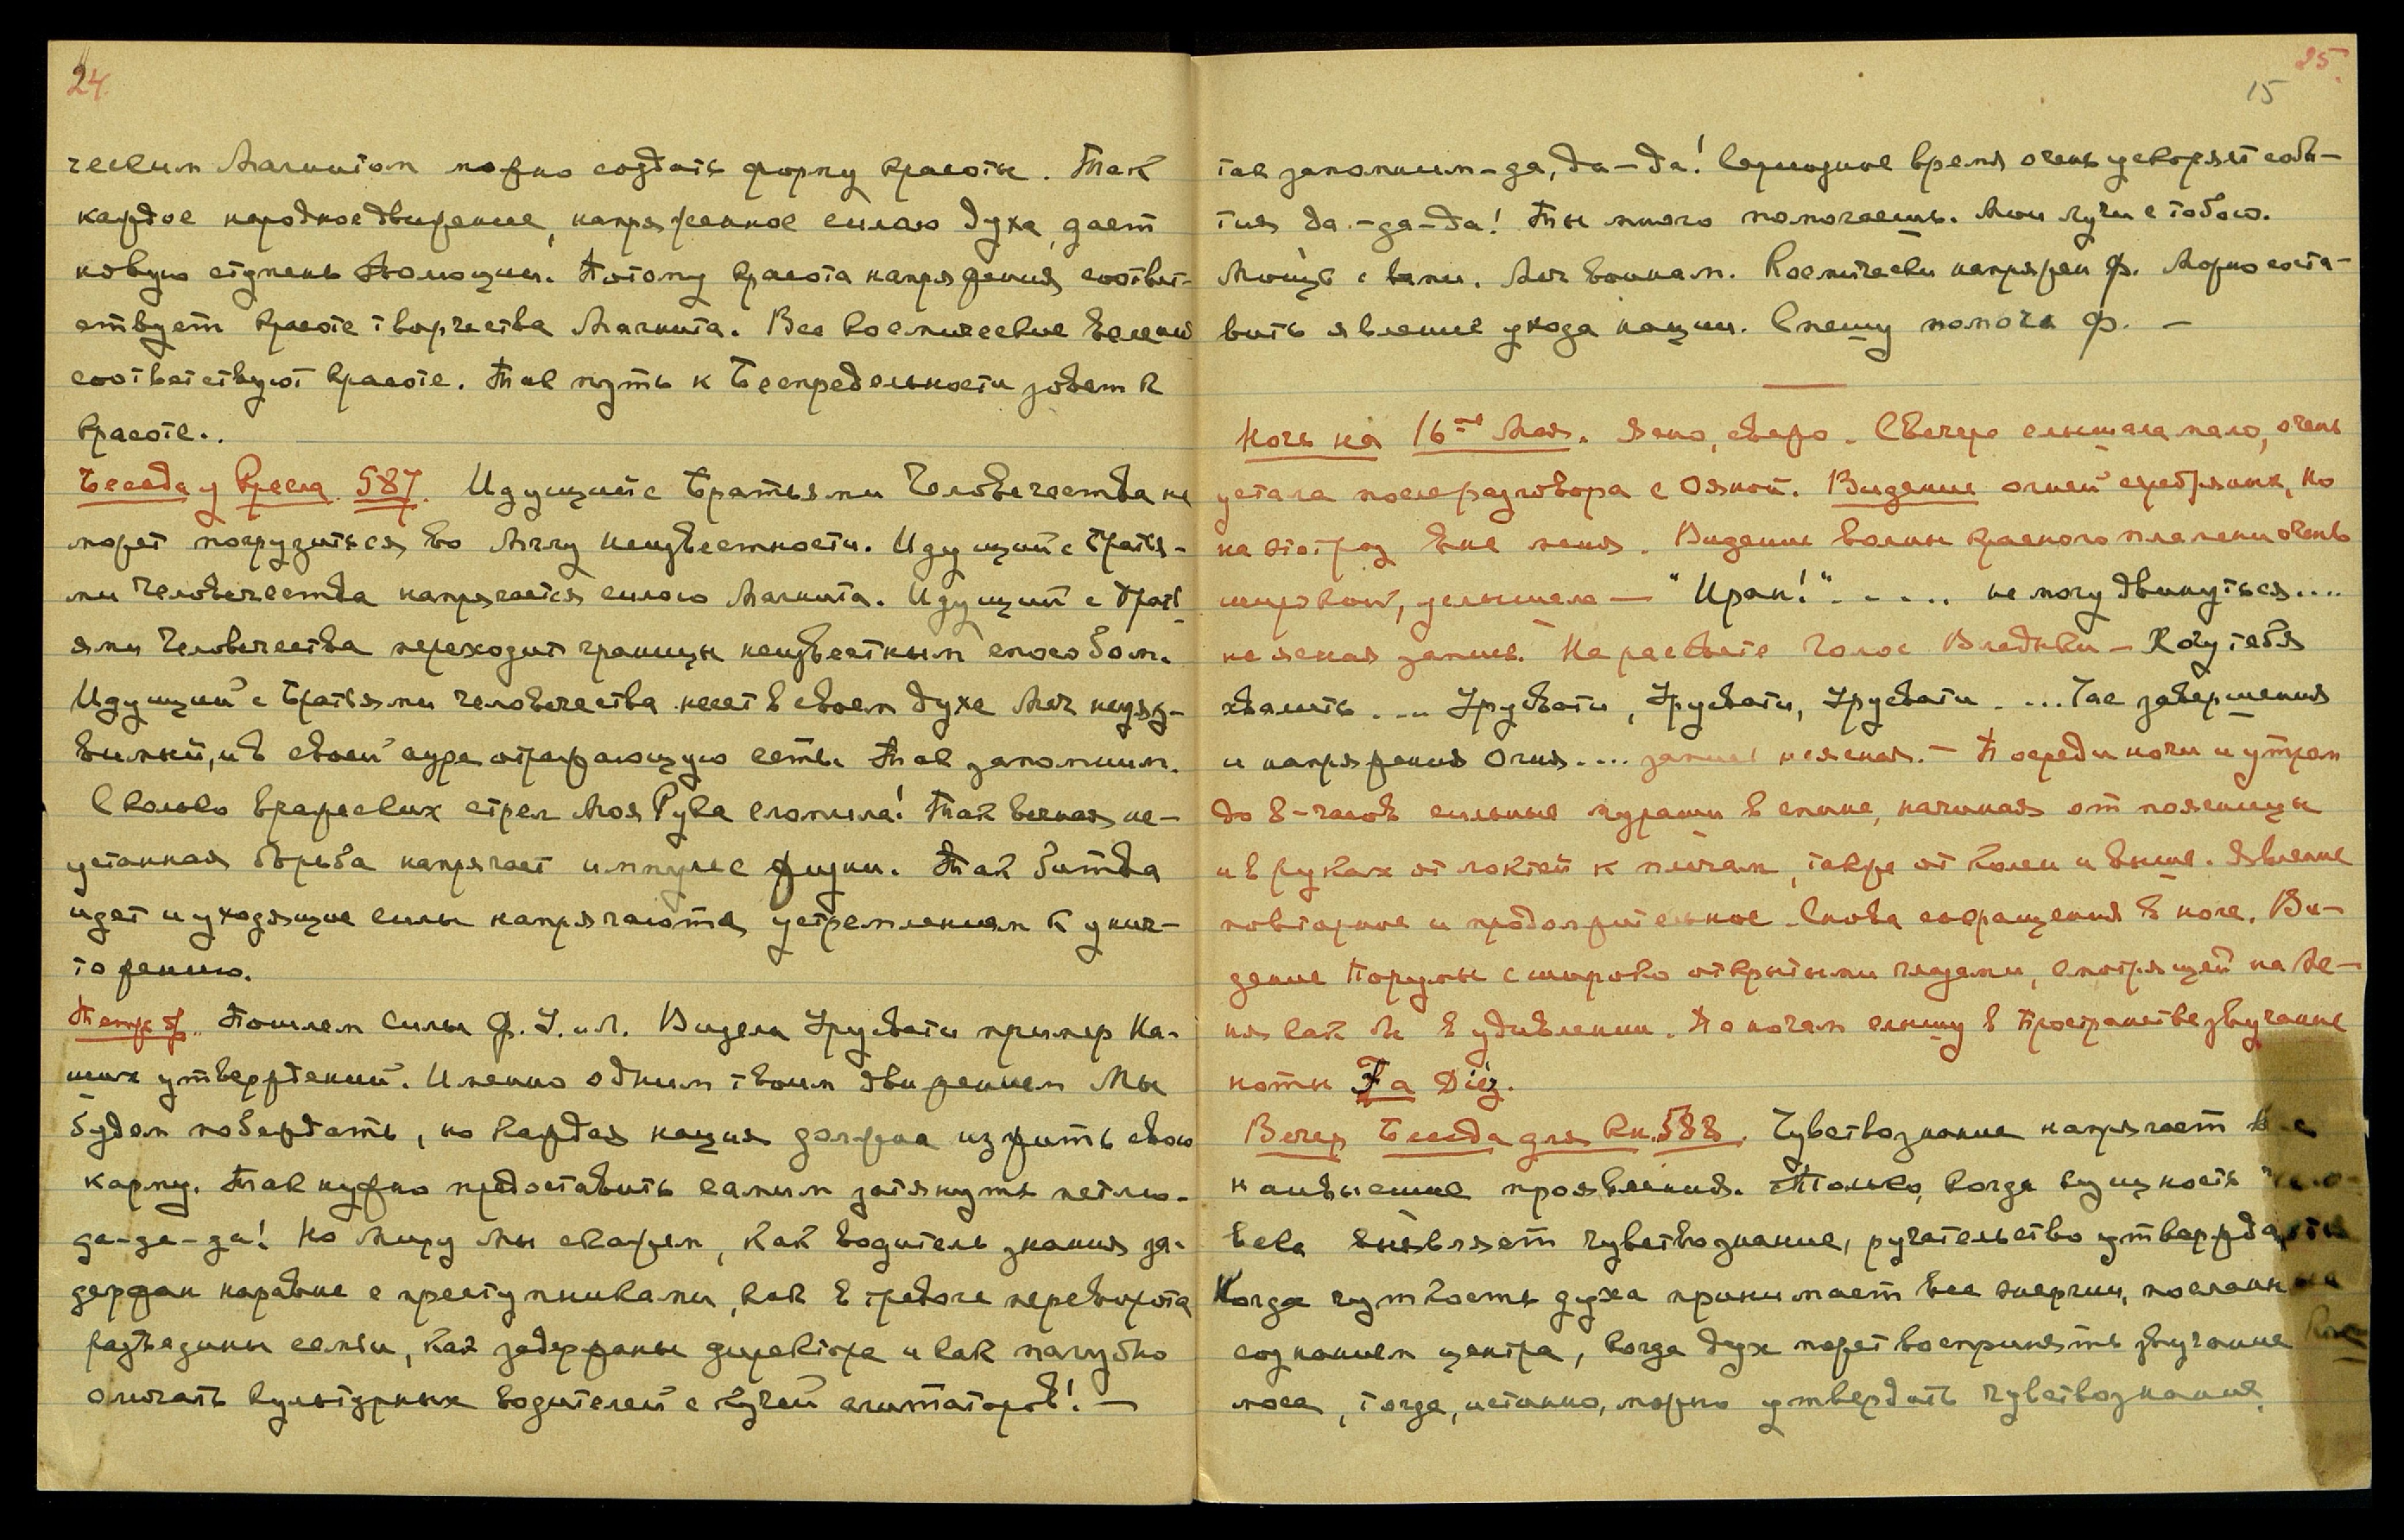 24.
ческим Магнитом можно создать форму красоты. Так
каждое народное движение, напряженное силою духа, дает
новую ступень эволюции. Потому красота напряжения соответ-
ствует красоте творчества Магнита. Все космические веления
соответствуют красоте. Так путь к Беспредельности зовет к
красоте..
Беседа у Кресла. 587. Идущий с Братьями Человечества не
может погрузиться во мглу неизвестности. Идущий с Братья-
ми Человечества напрягается силою Магнита. Идущий с Брать-
ями Человечества переходит границы неизвестным способом.
Идущий с Братьями Человечества несет в своем духе меч неуяз-
вимый, и в своей ауре отражающую сеть. Так запомним.
Сколько вражеских стрел Моя Рука сломила! Так вечная не-
устанная борьба напрягает импульс жизни. Так битва
идет и уходящие силы напрягаются устремлением к унич-
тожению.
Пошлем силы Ф. У. и Л. Видела Урусвати пример На-
ших утверждений. Именно одним твоим движением Мы
будем побеждать, но каждая нация должна изжить свою
карму. Так нужно предоставить самим затянуть петлю-
да-да-да! Но миру мы скажем, как водитель знания за-
держан наравне с преступниками, как в тревоге переворота
разъедины семьи, как задержаны директора и как пагубно
смешать культурных водителей с кучей агитаторов! —
25.
15
так запомним-да, да-да! Сериозное время очень ускоряет собы-
тия да-да-да! Ты много помогаешь. Мои лучи с тобою.
Мощь с вами. Меч воинам. Космически напряжен Ф. Можно соста-
вить явление ухода нации. Спешу помочь Ф. —
Ночь на 16ое Мая. Ясно, свежо. С вечера слышала мало, очень
устала после разговора с Ояной. Видение огней серебряных, но
на этот раз вне меня. Видение волны красного пламени очень
широкой, услышала — "Иран!" . . . . . не могу двинуться....
неясная запись. На рассвете голос Владыки — Хочу тебя
хвалить ... Урусвати, Урусвати, Урусвати .... Час завершения
и напряжения Огня.... запись неясная. — Посреди ночи и утром
до 8-часов сильные мураши в спине, начиная от поясницы
и в руках от локтей к плечам, также от колен и выше. Явление
повторное и продолжительное. Снова сокращения в ноге. Ви-
дение Порумы с широко открытыми глазами, смотрящей на ме-
ня как бы в удивлении. По ночам слышу в пространстве звучание
ноты Fa Diéz.
Вечер Беседа для Кн. 588. Чувствознание напрягает все
наивысшие проявления. Только, когда сущность чело-
века выявляет чувствознание, ручательство утверждается
Когда чуткость духа принимает все энергии, посланные
сознанием центра, когда дух может воспринять звучание Кос-
моса, тогда, истинно, можно утвердить чувствознание.